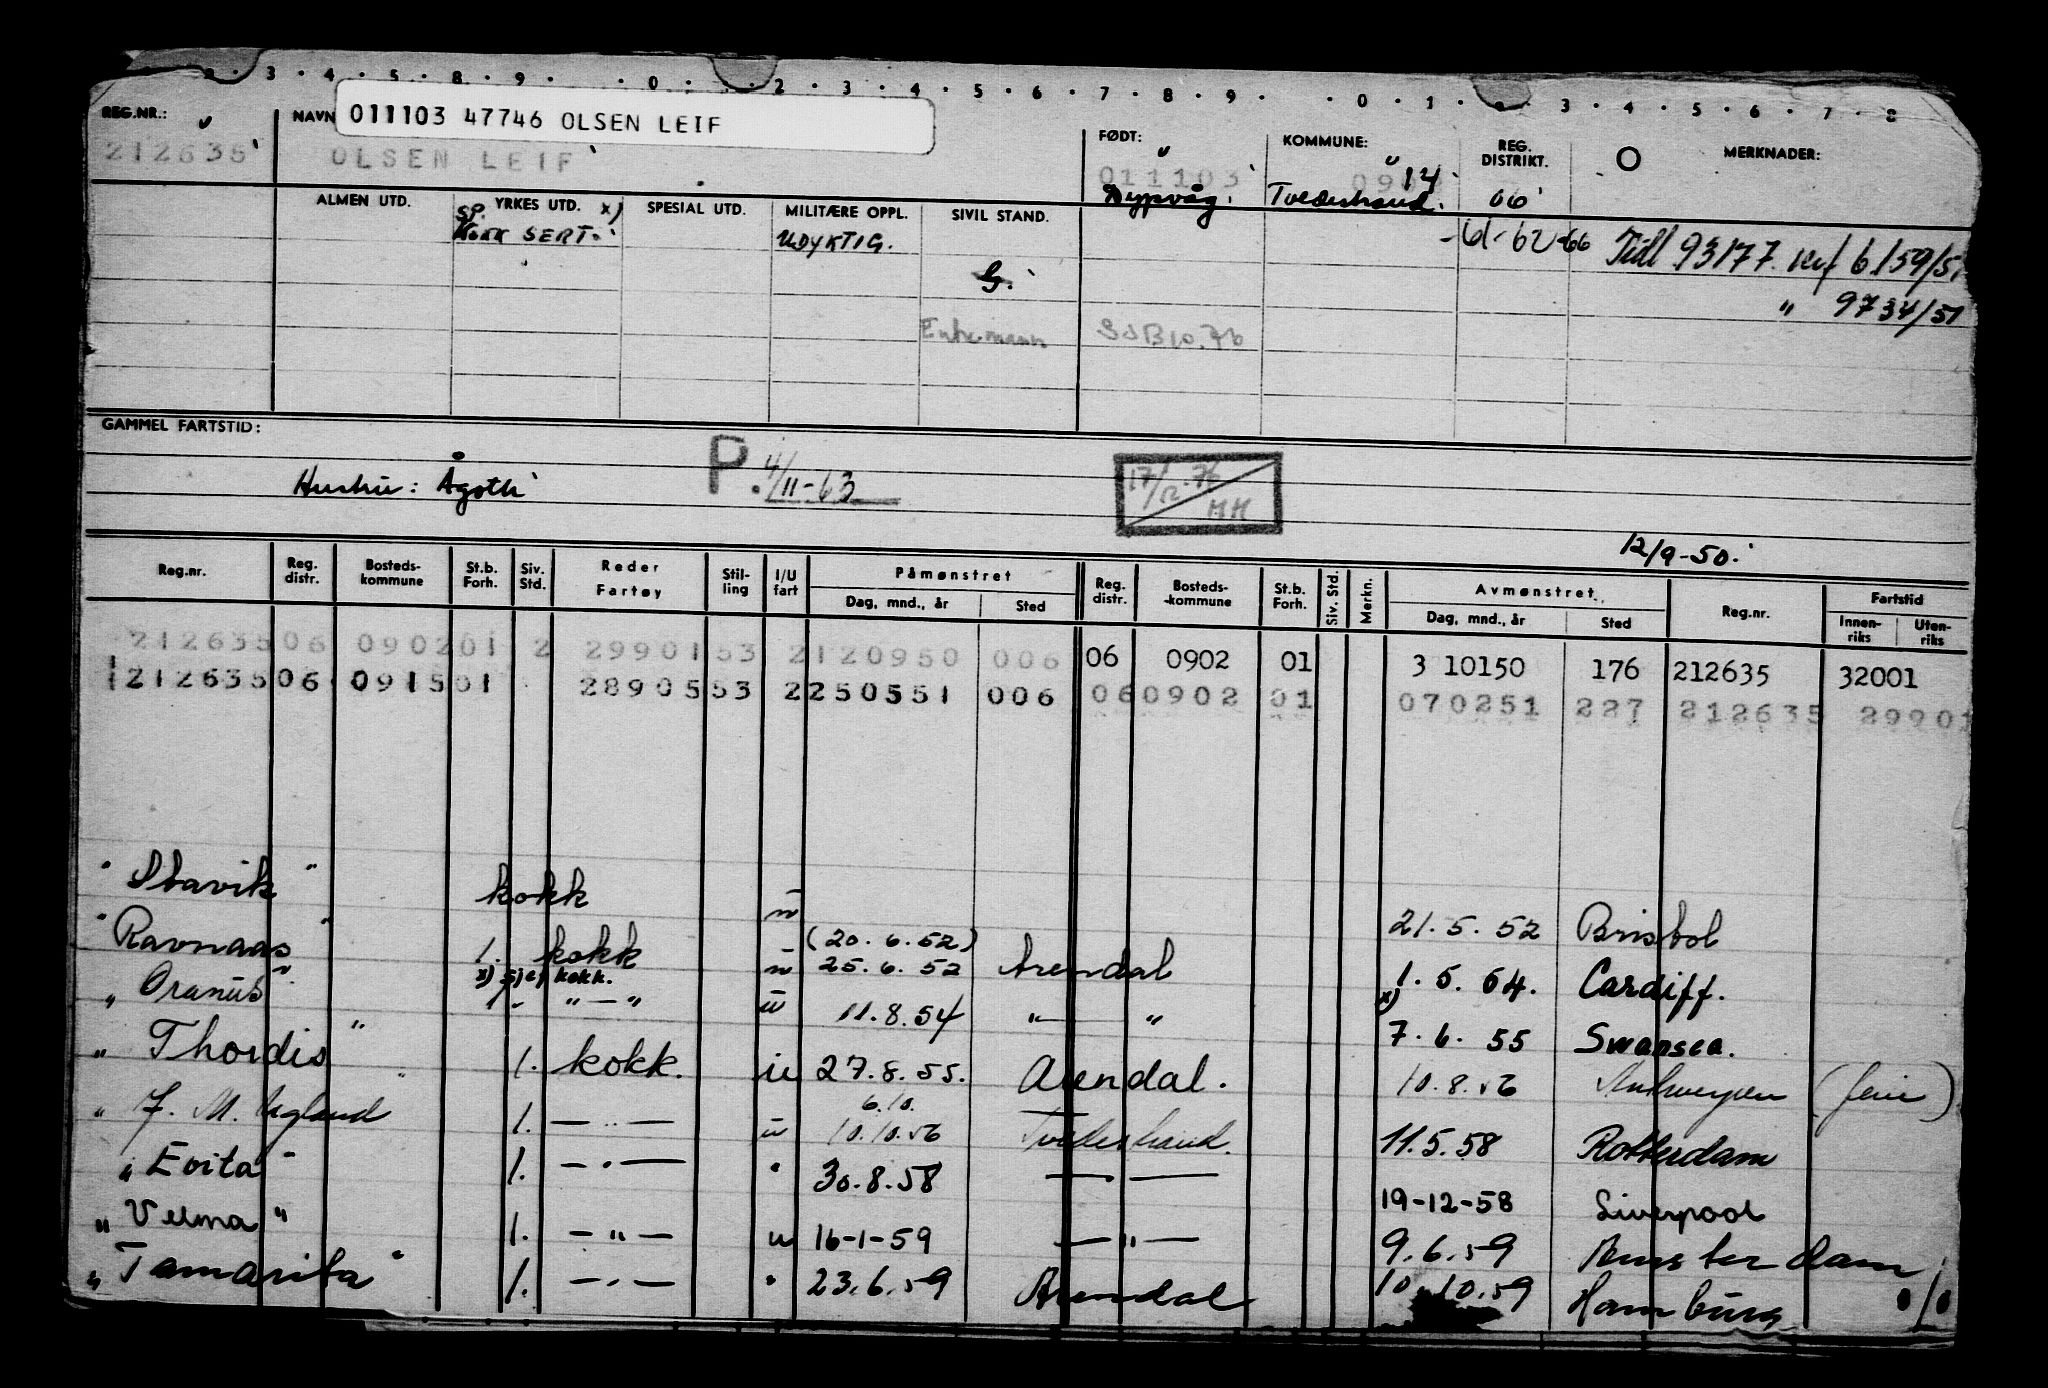 2 · 3 · 4 · 5 · 8 · 9 · · 0 · · 2 · 3 · 4 · 5 · 6 · 7 · 8 · 9 · · 0 · 1 · 2 · 3 · 4 · 5 · 6 · 7 · 8
011103 47746 OLSEN LEIF
REG.NR.: NAVN FØDT: KOMMUNE: REG. DISTRIKT. O MERKNADER:
212635 OLSEN LEIF 011103 14
Dypvåg. Tvedestrand. 06
ALMEN UTD. YRKES UTD. x) SPESIAL UTD. MILITÆRE OPPL. SIVIL STAND.
SP. KOKK SERT. UDYKTIG. -61-62-66 Tidl 93177 Kvf 6159/51
G. " 9734/51
Enkemann SJB 10.76
GAMMEL FARTSTID:
Hustru: Ågoth P. 4/11-63 17/12.76 HH
12/9-50.
Reg.nr. Reg. distr. Bosteds-kommune St.b. Forh. Siv. Std. Reder Fartøy Stil-ling I/U fart Påmønstret Dag, mnd., år Sted Reg. distr. Bosteds-kommune St.b. Forh. Siv. Std. Merkn. Avmønstret Dag, mnd., år Sted Reg.nr. Fartstid Innen-riks Uten-riks
212635 06 0902 01 2 29901 53 2 120950 006 06 0902 01 3 10150 176 212635 32001
212635 06 0915 01 28905 53 2 250551 006 06 0902 01 070251 227 212635 29901
" Stavik " kokk u 21.5.52 Bristol
" Ravnaas " 1. kokk u (20.6.52) 25.6.52 Arendal 1.5.54. Cardiff.
x) sjef kokk.
" Oranus " 1. " — " u 11.8.54 " — " x) 7.6.55 Swansea.
" Thordis " 1. kokk. u 27.8.55. Arendal. 10.8.56 Antwerpen (ferie)
" J. M. Ugland " 1. — " — u 6.10. 10.10.56 Tvedestrand. 11.5.58 Rotterdam
" Evita " 1. — " — " 30.8.58 — — 19-12-58 Liverpool
" Velma " 1. — " — u 16-1-59 — " — 9.6.59 Amsterdam
" Tamarita " 1. — " — " 23.6.59 Arendal 10.10.59 Hamburg